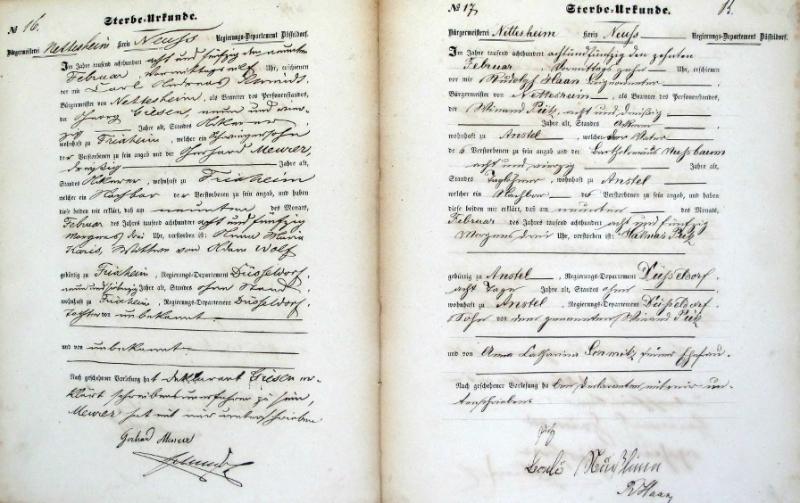 № 16.
Sterbe-Urkunde.
Bürgermeisterei Nettesheim Kreis Neuss Regierungs-Departement Düsseldorf.
Im Jahre tausend achthundert acht und fünfzig den neunten
Februar, Vormittags elf Uhr, erschienen
vor mir Carl
Bürgermeister von Nettesheim, als Beamter des Personenstandes,
der Giesen, neun und vier-
zig Jahre alt, Standes Ackerer
wohnhaft zu Frixheim, welcher ein Schwiegersohn
der Verstorbenen zu sein angab und der Gerhard Meurer,
dreißig Jahre alt,
Standes Ackerer, wohnhaft zu Frixheim
welcher ein Nachbar der Verstorbenen zu sein angab, und haben
diese beiden mir erklärt, daß am neunten des Monats
Februar des Jahres tausend achthundert acht und fünfzig
Morgens drei Uhr, verstorben ist: Anna Maria
Wittwe von Adam Wolf
gebürtig zu Frixheim, Regierungs-Departement Düsseldorf,
Jahre alt, Standes ohne Stand,
wohnhaft zu Frixheim, Regierungs-Departement Düsseldorf,
Tochter von unbekannt
und von unbekannt
Nach geschehener Vorlesung hat Deklarant Giesen er-
klärt schreibensunerfahren zu sein,
Meurer hat mit mir unterschrieben
Gerhard Meurer
№ 17.
Sterbe-Urkunde.
Bürgermeisterei Nettesheim Kreis Neuss Regierungs-Departement Düsseldorf.
Im Jahre tausend achthundert achtundfünfzig den zehnten
Februar, Vormittags Uhr, erschienen
vor mir Rudolf Haan Beigeordneter
Bürgermeister von Nettesheim, als Beamter des Personenstandes,
der Winand Pütz, acht und dreißig
Jahre alt, Standes Ackerer
wohnhaft zu Anstel, welcher der Vater
des Verstorbenen zu sein angab und der Bartholomäus Nussbaum
acht und vierzig Jahre alt,
Standes Taglöhner, wohnhaft zu Anstel
welcher ein Nachbar des Verstorbenen zu sein angab, und haben
diese beiden mir erklärt, daß am neunten des Monats
Februar des Jahres tausend achthundert acht und fünfzig
Morgens drei Uhr, verstorben ist: Pütz
gebürtig zu Anstel, Regierungs-Departement Düsseldorf
acht Tage Jahre alt, Standes ohne
wohnhaft zu Anstel, Regierungs-Departement Düsseldorf.
Sohn von dem genannten Winand Pütz
und von Anna Catharina seiner Ehefrau.
Nach geschehener Vorlesung haben Declaranten mit mir un-
terschrieben
Pütz
R Haan